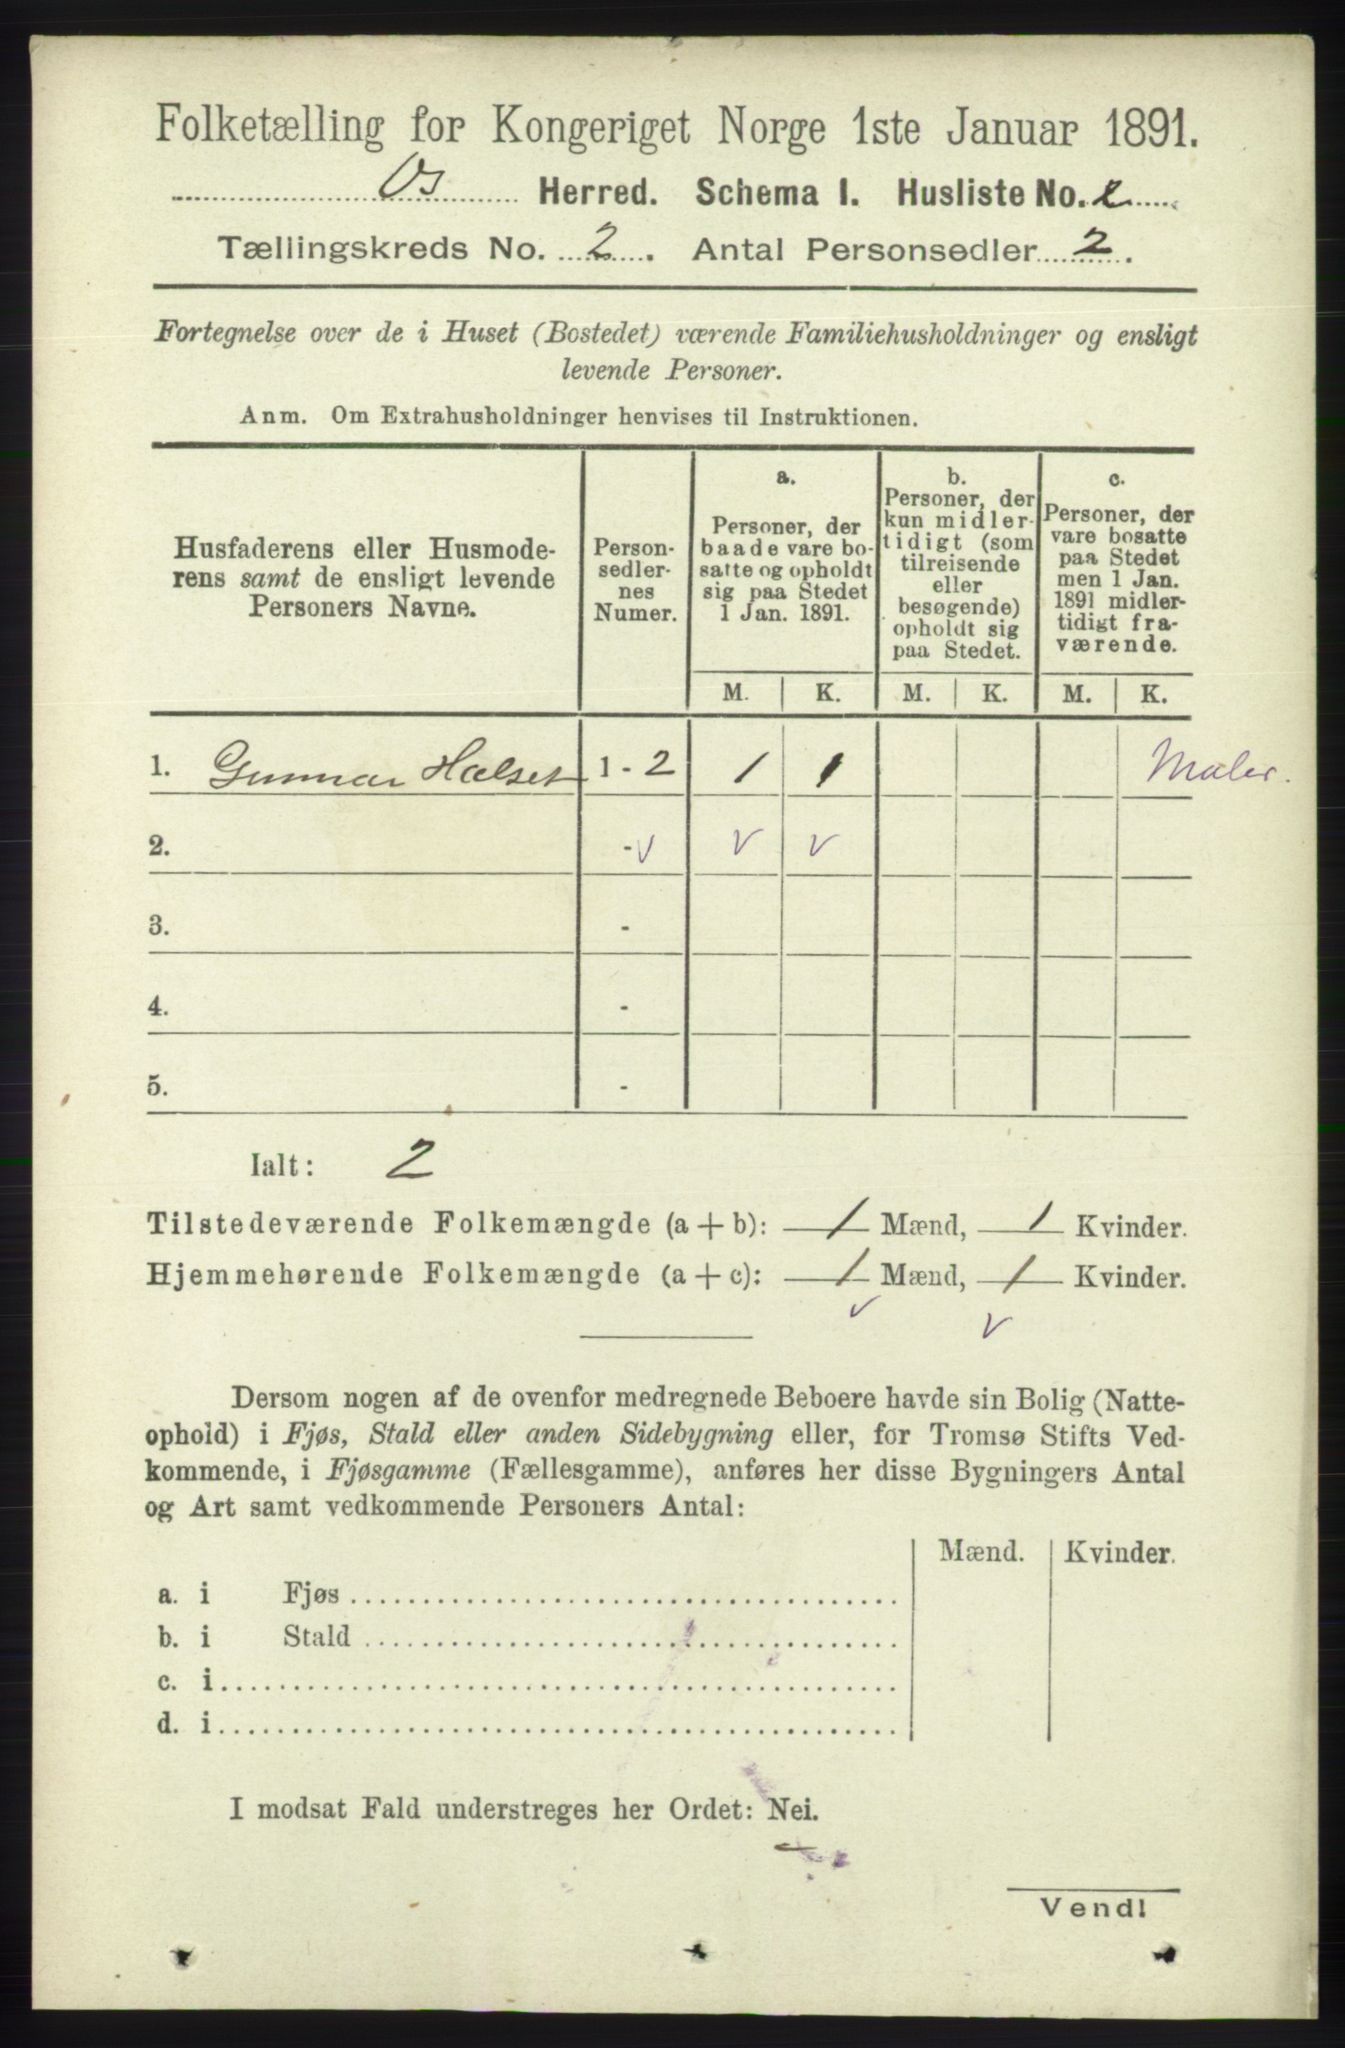 Folketælling for Kongeriget Norge 1ste Januar 1891.
Os Herred. Schema I. Husliste No.
Tællingskreds No. 2. Antal Personsedler 2.
Fortegnelse over de i Huset (Bostedet) værende Familiehusholdninger og ensligt
levende Personer.
Anm. Om Extrahusholdninger henvises til Instruktionen.
Husfaderens eller Husmode-
rens samt de ensligt levende
Personers Navne.
Person-
sedler-
nes
Numer.
a.
Personer, der
baade vare bo-
satte og opholdt
sig paa Stedet
1 Jan. 1891.
b.
Personer, der
kun midler-
tidigt (som
tilreisende
eller
besøgende)
opholdt sig
paa Stedet.
c.
Personer, der
vare bosatte
paa Stedet
men 1 Jan.
1891 midler-
tidigt fra-
værende.
M. K. M. K. M. K.
1. Gunnar Halset 1 - 2 1 1 Maler.
2. - v v v
3. -
4. -
5. -
Ialt: 2
Tilstedeværende Folkemængde (a + b): 1 Mænd, 1 Kvinder.
Hjemmehørende Folkemængde (a + c): 1 Mænd, 1 Kvinder.
v v
Dersom nogen af de ovenfor medregnede Beboere havde sin Bolig (Natte-
ophold) i Fjøs, Stald eller anden Sidebygning eller, for Tromsø Stifts Ved-
kommende, i Fjøsgamme (Fællesgamme), anføres her disse Bygningers Antal
og Art samt vedkommende Personers Antal:
Mænd. Kvinder.
a. i Fjøs
b. i Stald
c. i
d. i
I modsat Fald understreges her Ordet: Nei.
Vend!